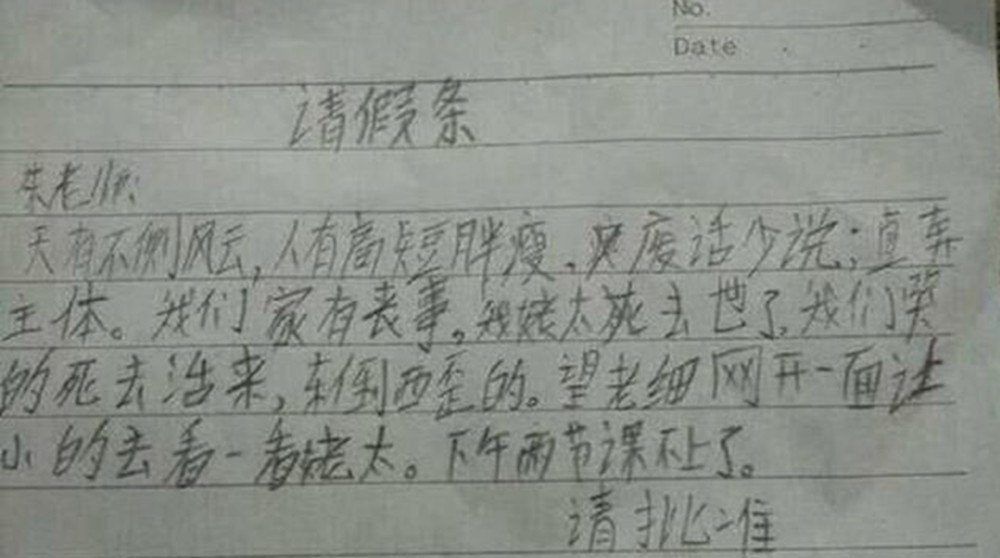 No.
Date
请假条
朱老师:
天有不侧风云,人有高短胖瘦。突废话少说;直弄
主体。我们家有丧事。我姥太死去世了,我们哭
的死去活来,东倒西歪的。望老细网开一面让
小的去看一看姥太。下午两节课不上了。
请批准